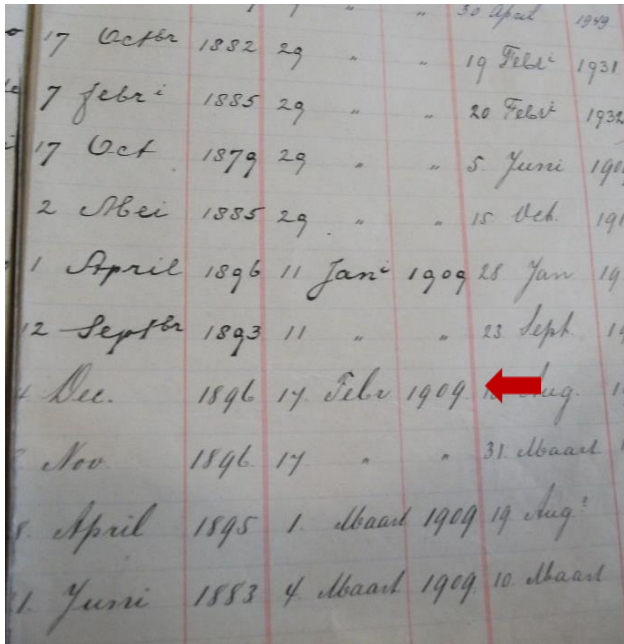 30 April 1949
17 Octbr 1882 29 " " 19 Febri 1931
7 febri 1885 29 " " 20 Febri 1932
17 Oct 1879 29 " " 5 Juni
2 Mei 1885 29 " " 15 Oct.
1 April 1896 11 Jani 1909 28 Jan 19
12 Septbr 1893 11 " " 23 Sept 19
Dec. 1896 17 Febr 1909 Aug.
Nov. 1896 17 " " 31 Maart
8. April 1895 1. Maart 1909 19 Aug
1. Juni 1883 4 Maart 1909 10. Maart